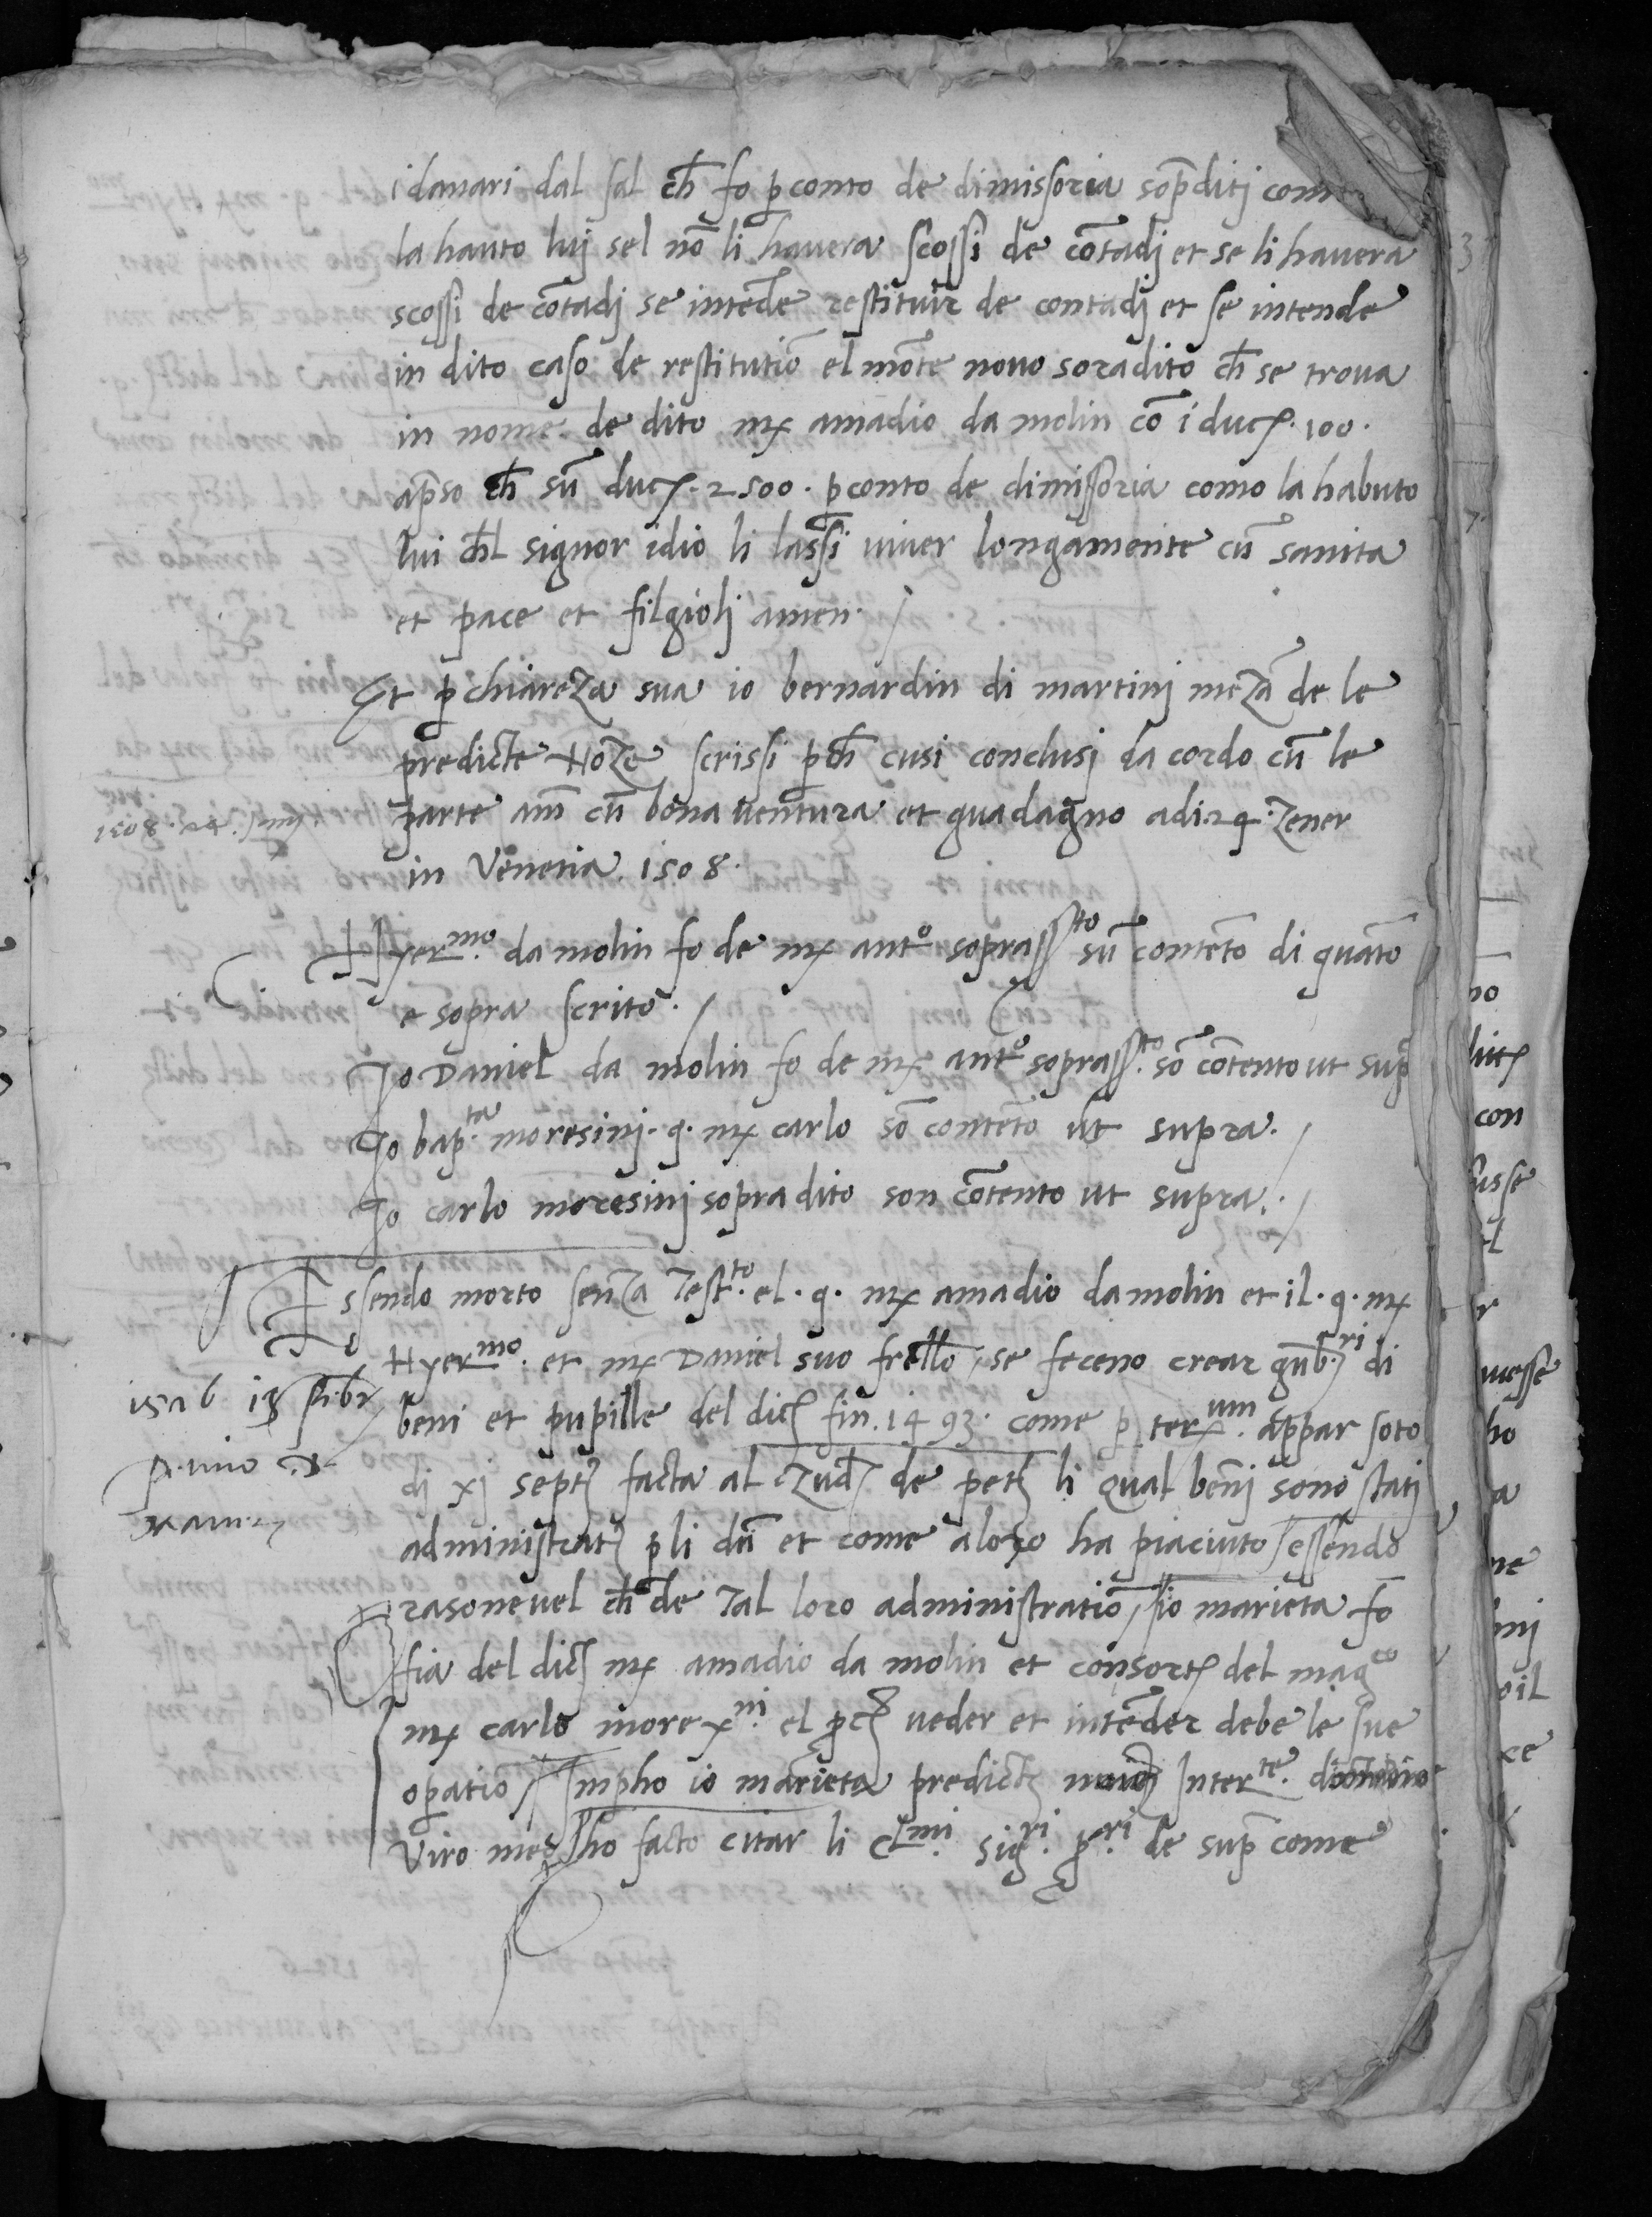 i danari dal sal ch̄ fo p conto de dimissoria sop̄diti com
la hauto luj sel nō li hauera scossi de cōtadj et se li hauera
scossi de cōtadj se intēde restituir de contadj et se intende
in dito caso de restitutiō el mōte nouo soradito ch̄ se troua
in nome de dito mx amadio da molin cō i duc. 100.
ap̄so ch̄ sū duc. 2500. p conto de dimissoria como la habuto
lui ch̄l signor idio li lassi viuer longamente cū sanita
et pace et filgiolj amen. /
Et p chiareza sua io bernardin di martinj mezā de le
predicte Noze scrissi pch̄ cusi conclusi da cordo cū le
parte am̄ cū bona ventura et guadagno adi 24 Zener
in Venetia 1508.
1508. 24.
Hyer.mo da molin fo de mx ant.o soprass.to sū contēto di quāto
e sopra scrito. /
Io Daniel da molin fo de mx ant.o soprass.to sō cōtento ut sup.a
Io bap.ta moresinj. q. mx carlo sō contēto ut supra. /
Io carlo moresinj sopradito son cōtento ut supra. /
Essendo morto senza Test.to el. q. mx amadio da molin et il. q. mx
Hyer.mo et mx Daniel suo frello / se feceno crear gub.ri di
1526 18
beni et pupille del dic fin. 1493. come p ter.um appar soto
di xj sept facta al Zud de pet li qual benj sono statj
administrat p li dū et come a loro ha piaciuto / essendo
rasoneuel ch̄ de Tal loro administratiō / io marieta fo
fia del dic mx amadio da molin et consort del mag.co
mx carlo morex.ni el pc veder et intēder debe le sue
opatiō / Impho io marieta predict Inter.te
Viro meo / ho facto citar li cl.mi sig.ri p.ri de sup come